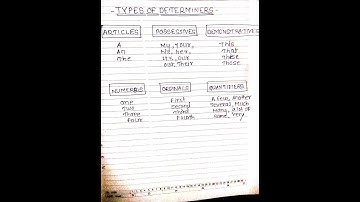 - TYPES OF DETERMINERS -
ARTICLES POSSESSIVES DEMONSTRATIVES
A My, Your, This
An his, her, That
The its, our These
our, Their Those
NUMERALS ORDINALS QUANTIFIERS
One First A few, another
Two Second Several, Much
Three Third Many, a lot of
Four Fourth Some, Very